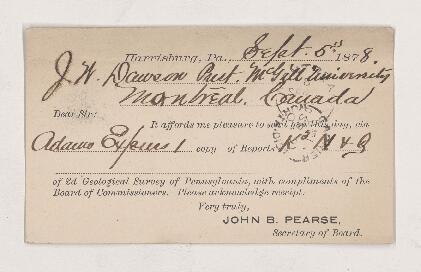 Harrisburg, Pa., Sept. 5th 1878.
J. W. Dawson Prest. McGill University
Montreal. Canada
Dear Sir:
It affords me pleasure to send you this day, via
Adams Express 1 copy of Reports K3 N & Q
of 2d Geological Survey of Pennsylvania, with compliments of the
Board of Commissioners. Please acknowledge receipt.
Very truly,
JOHN B. PEARSE,
Secretary of Board.